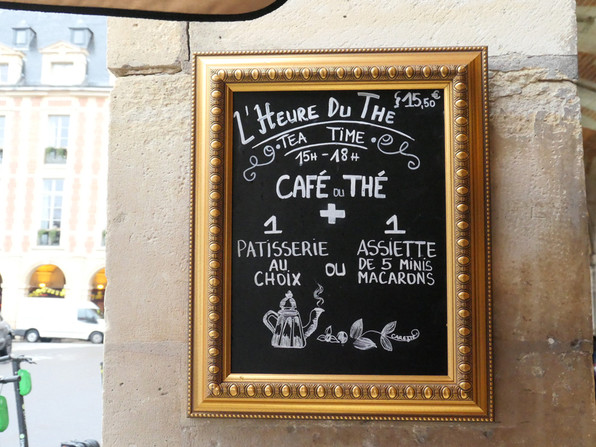 L'HEURE DU THE
15,50€
TEA TIME
15H - 18H
CAFÉ OU THÉ
+
1
PATISSERIE
AU
CHOIX
OU
1
ASSIETTE
DE 5 MINIS
MACARONS
CARETTE